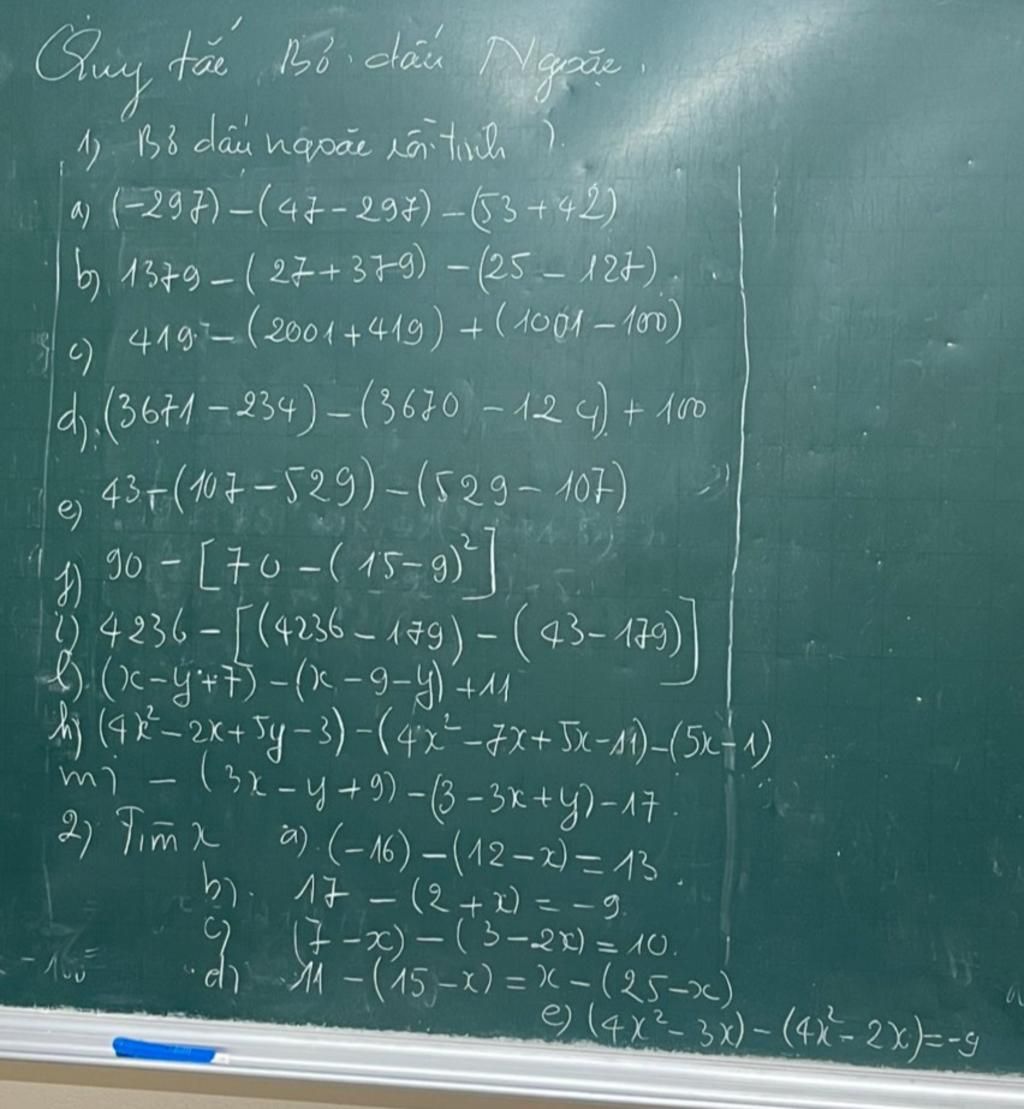 Quy tắc Bỏ dấu Ngoặc.
1) Bỏ dấu ngoặc rồi tính ).
a) (-297) - (47 - 297) - (53 + 42)
b) 1379 - (27 + 379) - (25 - 127).
c) 419 - (2001 + 419) + (1001 - 100)
d) (3671 - 234) - (3670 - 124) + 100
e) 43 + (107 - 529) - (529 - 107)
f) 90 - [70 - (15 - 9)²]
i) 4236 - [(4236 - 179) - (43 - 179)]
l) (x - y + 7) - (x - 9 - y) + 11
h) (4x² - 2x + 5y - 3) - (4x² - 7x + 5x - 11) - (5x - 1)
m) - (3x - y + 9) - (3 - 3x + y) - 17.
2) Tìm x a) (-16) - (12 - x) = 13.
b) 17 - (2 + x) = -9.
c) (7 - x) - (3 - 2x) = 10.
d) 11 - (15 - x) = x - (25 - x)
e) (4x² - 3x) - (4x² - 2x) = -9